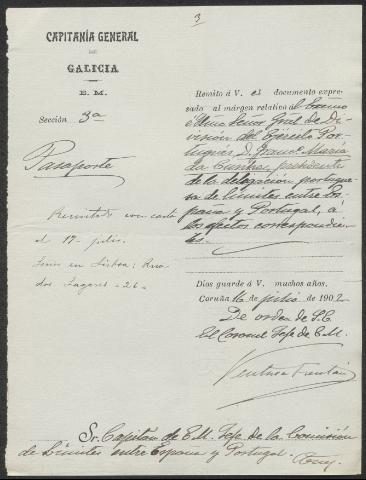 3
CAPITANÍA GENERAL
DE
GALICIA
E. M.
Sección 3ª
Pasaporte
Remitido con carta
el 17 julio.
en Lisboa: Rua
dos Lagares - 26 -
Remito á V. el documento expre-
sado al márgen relativo al Excmo
é Ilmo Señor Gral de Di-
visión del Ejército Por-
tugués D. Franco Maria
da Cunha, presidente
de la delegación portugue-
sa de límites entre Es-
paña y Portugal, á
los efectos correspondien-
tes.
Dios guarde á V. muchos años.
Coruña 16 de julio de 1902.
De orden de S. E.
El Coronel Jefe de E. M.
Ventura
Sr. Capitán de E. M. Jefe de la Comisión
de Límites entre España y Portugal.
Tuy.